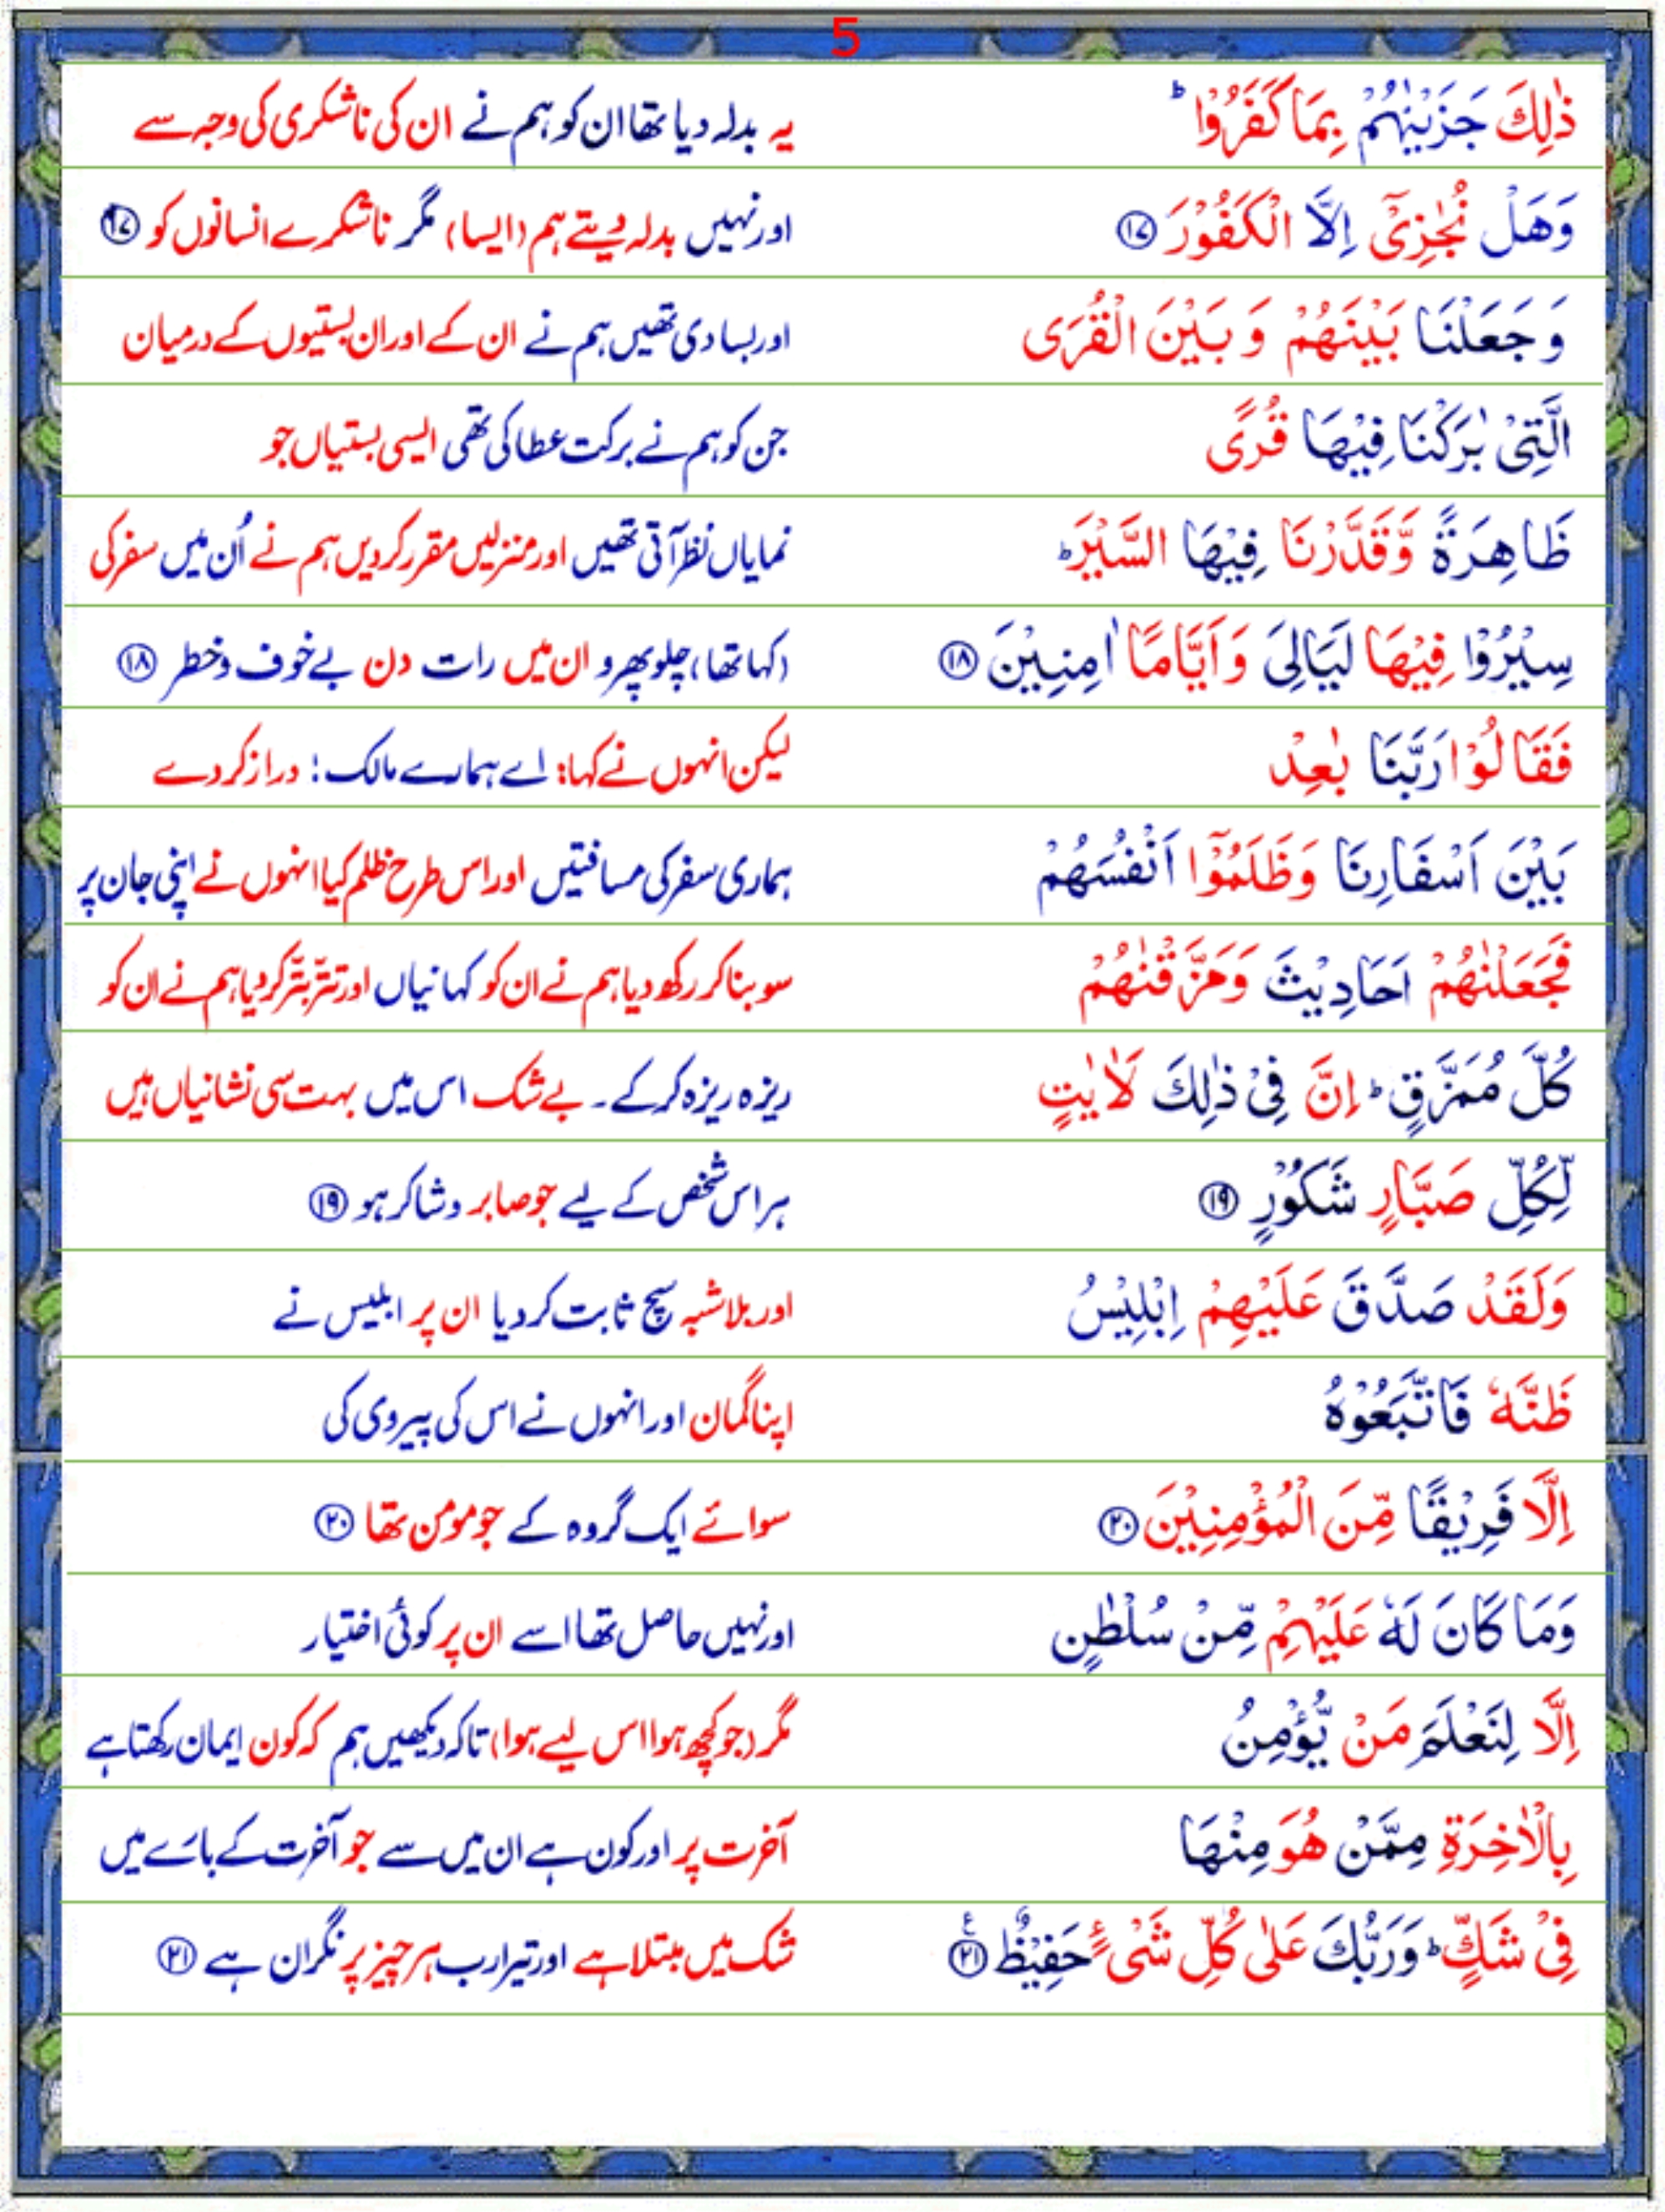 5
ذٰلِكَ جَزَيْنٰهُمْ بِمَا كَفَرُوْا ؕ یہ بدلہ دیا تھا ان کو ہم نے ان کی ناشکری کی وجہ سے
وَهَلْ نُجٰزِيْۤ اِلَّا الْكَفُوْرَ ⑰ اور نہیں بدلہ دیتے ہم (ایسا) مگر ناشکرے انسانوں کو ⑰
وَ جَعَلْنَا بَيْنَهُمْ وَ بَيْنَ الْقُرَى اور بسا دی تھیں ہم نے ان کے اور ان بستیوں کے درمیان
الَّتِيْ بٰرَكْنَا فِيْهَا قُرًى جن کو ہم نے برکت عطا کی تھی ایسی بستیاں جو
ظَاهِرَةً وَّقَدَّرْنَا فِيْهَا السَّيْرَ ؕ نمایاں نظر آتی تھیں اور منزلیں مقرر کردیں ہم نے اُن میں سفر کی
سِيْرُوْا فِيْهَا لَيَالِيَ وَاَيَّامًا اٰمِنِيْنَ ⑱ (کہا تھا) چلو پھرو ان میں رات دن بے خوف و خطر ⑱
فَقَالُوْا رَبَّنَا بٰعِدْ لیکن انہوں نے کہا: اے ہمارے مالک! دراز کردے
بَيْنَ اَسْفَارِنَا وَظَلَمُوْۤا اَنْفُسَهُمْ ہماری سفر کی مسافتیں اور اس طرح ظلم کیا انہوں نے اپنی جان پر
فَجَعَلْنٰهُمْ اَحَادِيْثَ وَمَزَّقْنٰهُمْ سو بنا کر رکھ دیا ہم نے ان کو کہانیاں اور تتّر بتّر کردیا ہم نے ان کو
كُلَّ مُمَزَّقٍ ؕ اِنَّ فِيْ ذٰلِكَ لَاٰيٰتٍ ریزہ ریزہ کرکے۔ بے شک اس میں بہت سی نشانیاں ہیں
لِّكُلِّ صَبَّارٍ شَكُوْرٍ ⑲ ہر اس شخص کے لیے جو صابر و شاکر ہو ⑲
وَلَقَدْ صَدَّقَ عَلَيْهِمْ اِبْلِيْسُ اور بلاشبہ سچ ثابت کردیا ان پر ابلیس نے
ظَنَّهٗ فَاتَّبَعُوْهُ اپنا گمان اور انہوں نے اس کی پیروی کی
اِلَّا فَرِيْقًا مِّنَ الْمُؤْمِنِيْنَ ⑳ سوائے ایک گروہ کے جو مومن تھا ⑳
وَمَا كَانَ لَهٗ عَلَيْهِمْ مِّنْ سُلْطٰنٍ اور نہیں حاصل تھا اسے ان پر کوئی اختیار
اِلَّا لِنَعْلَمَ مَنْ يُّؤْمِنُ مگر (جو کچھ ہوا اس لیے ہوا) تاکہ دیکھیں ہم کہ کون ایمان رکھتا ہے
بِالْاٰخِرَةِ مِمَّنْ هُوَ مِنْهَا آخرت پر اور کون ہے ان میں سے جو آخرت کے بارے میں
فِيْ شَكٍّ ؕ وَرَبُّكَ عَلٰى كُلِّ شَيْءٍ حَفِيْظٌ ㉑ ع شک میں مبتلا ہے اور تیرا رب ہر چیز پر نگران ہے ㉑